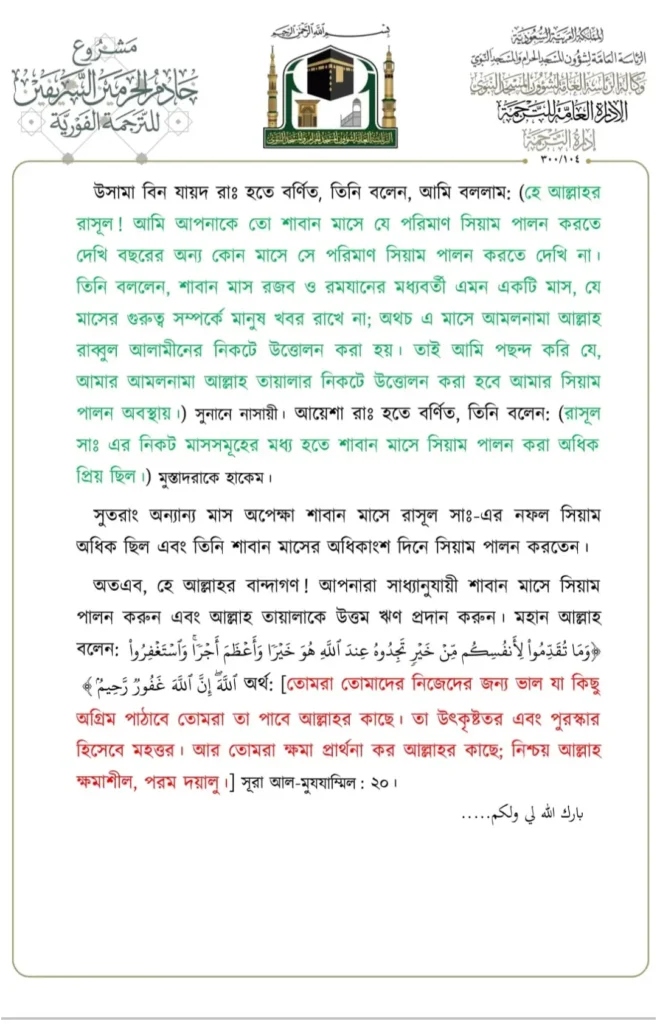 بسم الله الرحمن الرحيم
المملكة العربية السعودية
الرئاسة العامة لشؤون المسجد الحرام والمسجد النبوي
وكالة الرئاسة العامة لشؤون المسجد النبوي
الإدارة العامة للترجمة
إدارة الترجمة
٣٠٠/١٠٤
مشروع
خادم الحرمين الشريفين
للترجمة الفورية
উসামা বিন যায়দ রাঃ হতে বর্ণিত, তিনি বলেন, আমি বললাম: (হে আল্লাহর
রাসূল! আমি আপনাকে তো শাবান মাসে যে পরিমাণ সিয়াম পালন করতে
দেখি বছরের অন্য কোন মাসে সে পরিমাণ সিয়াম পালন করতে দেখি না।
তিনি বললেন, শাবান মাস রজব ও রমযানের মধ্যবর্তী এমন একটি মাস, যে
মাসের গুরুত্ব সম্পর্কে মানুষ খবর রাখে না; অথচ এ মাসে আমলনামা আল্লাহ
রাব্বুল আলামীনের নিকটে উত্তোলন করা হয়। তাই আমি পছন্দ করি যে,
আমার আমলনামা আল্লাহ তায়ালার নিকটে উত্তোলন করা হবে আমার সিয়াম
পালন অবস্থায়।) সুনানে নাসায়ী। আয়েশা রাঃ হতে বর্ণিত, তিনি বলেন: (রাসূল
সাঃ এর নিকট মাসসমূহের মধ্য হতে শাবান মাসে সিয়াম পালন করা অধিক
প্রিয় ছিল।) মুস্তাদরাকে হাকেম।
সুতরাং অন্যান্য মাস অপেক্ষা শাবান মাসে রাসূল সাঃ-এর নফল সিয়াম
অধিক ছিল এবং তিনি শাবান মাসের অধিকাংশ দিনে সিয়াম পালন করতেন।
অতএব, হে আল্লাহর বান্দাগণ! আপনারা সাধ্যানুযায়ী শাবান মাসে সিয়াম
পালন করুন এবং আল্লাহ তায়ালাকে উত্তম ঋণ প্রদান করুন। মহান আল্লাহ
বলেন: ﴿وَمَا تُقَدِّمُواْ لِأَنفُسِكُم مِّنْ خَيْرٖ تَجِدُوهُ عِندَ ٱللَّهِ هُوَ خَيْرٗا وَأَعْظَمَ أَجْرٗاۚ وَٱسْتَغْفِرُواْ
ٱللَّهَۖ إِنَّ ٱللَّهَ غَفُورٞ رَّحِيمُۢ﴾ অর্থ: [তোমরা তোমাদের নিজেদের জন্য ভাল যা কিছু
অগ্রিম পাঠাবে তোমরা তা পাবে আল্লাহর কাছে। তা উৎকৃষ্টতর এবং পুরস্কার
হিসেবে মহত্তর। আর তোমরা ক্ষমা প্রার্থনা কর আল্লাহর কাছে; নিশ্চয় আল্লাহ
ক্ষমাশীল, পরম দয়ালু।] সূরা আল-মুযযাম্মিল : ২০।
بارك الله لي ولكم.....